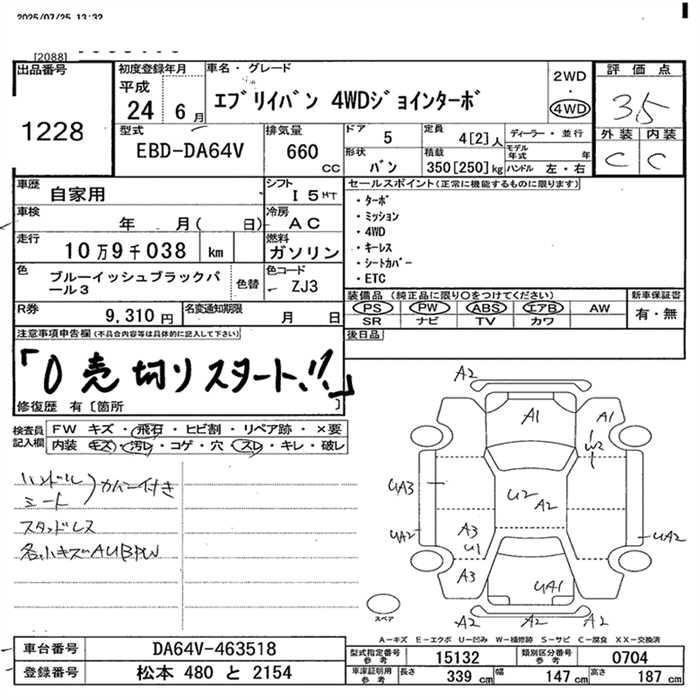 2025/07/25 13:32
[2088]
出品番号
1228
初度登録年月
平成
24 6月
車名・グレード
エブリイバン 4WDジョインターボ
2WD
・
4WD
評価点
3.5
外装 内装
C C
型式
EBD-DA64V
排気量
660
CC
ドア 5
形状 バン
定員 4[2]人
積載 350[250]kg
ディーラー・並行
モデル年式 年
ハンドル 左・右
車歴
自家用
シフト
I 5MT
車検
年 月( 日)
冷房
AC
走行
10万9千038 km
燃料
ガソリン
色
ブルーイッシュブラックパール3
色替
色コード
ZJ3
R券
9,310円
名変通知期限
月 日
セールスポイント(正常に機能するものに限ります)
・ターボ
・ミッション
・4WD
・キーレス
・シートカバー
・ETC
装備品(純正品に限り○をつけてください)
PS PW ABS エアB AW
SR ナビ TV カワ
新車保証書
有・無
後日品
注意事項申告欄(不具合内容等は具体的に記入して下さい)
「0売切りスタート!!」
修復歴 有〔箇所 〕
検査員記入欄
FW キズ・飛石・ヒビ割・リペア跡・×要
内装 キズ・汚レ・コゲ・穴・スレ・キレ・破レ
ハンドル
シート
)カバー付き
スタッドレス
各小キズAUBPW
A2
A1
A1
W2
UA3
U2
A2
UA2
A3
U1
UA2
A3
UA1
A2
A2
A2
スペア
A-キズ E-エクボ U-凹み W-補修跡 S-サビ C-腐食 XX-交換済
車台番号
DA64V-463518
登録番号
松本 480 と 2154
型式指定番号
参考
15132
類別区分番号
参考
0704
車庫証明用
参考
長さ 339 cm
幅 147 cm
高さ 187 cm